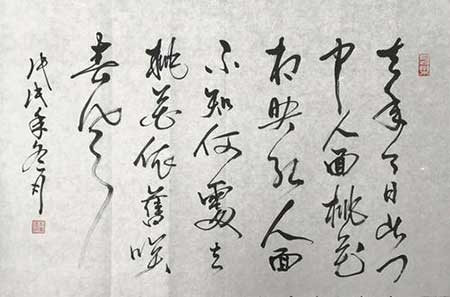 去年今日此门
中人面桃花
相映红人面
不知何處去
桃花依舊咲
春风
戊戌年冬月